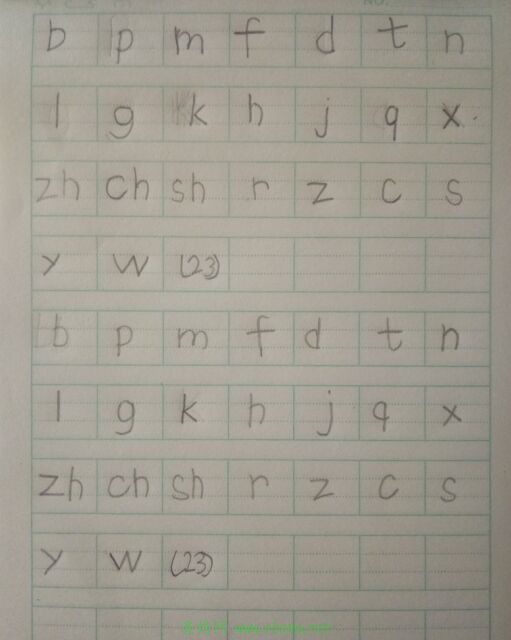 b p m f d t n
l g k h j q x
zh ch sh r z c s
y w (23)
b p m f d t n
l g k h j q x
zh ch sh r z c s
y w (23)